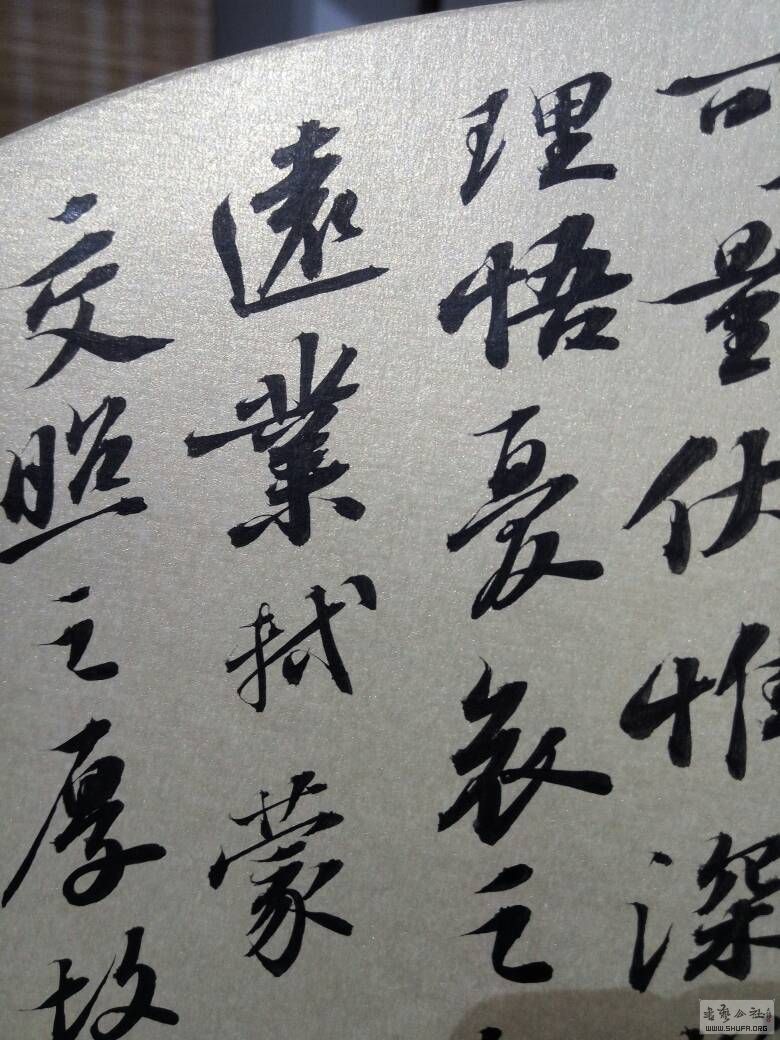 可量伏惟深
理悟憂哀之
遠業拭蒙
交照之厚故
書藝公社
WWW.SHUFA.ORG